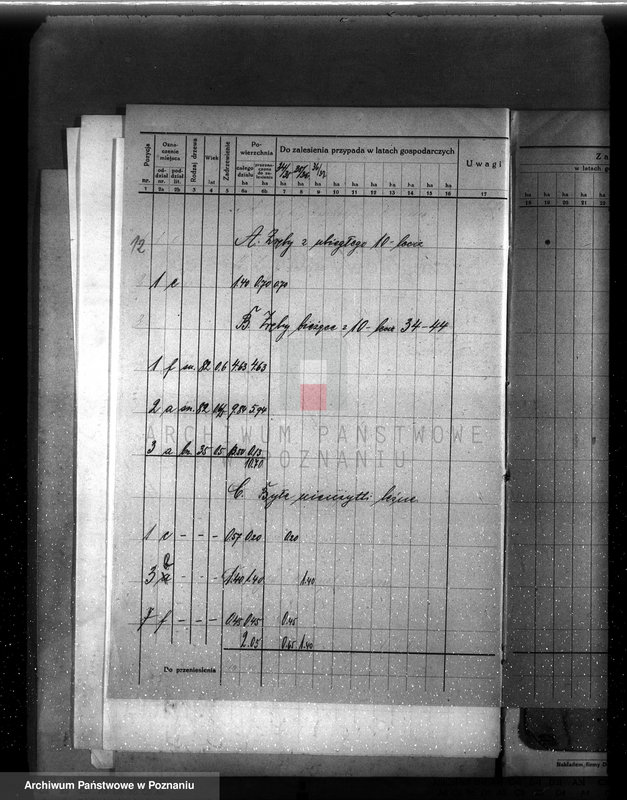 Pozycja Oznaczenie miejsca Rodzaj drzewa Wiek Zadrzewienie Powierzchnia Do zalesienia przypada w latach gospodarczych Uwagi
oddział nr. poddział lit. całego działu 34/35 35/36 36/37
nr. lat ha ha ha ha ha ha ha ha ha ha ha ha
1 2a 2b 3 4 5 6a 6b 7 8 9 10 11 12 13 14 15 16 17
12 A. Zręby z ubiegłego 10-lecia
1 c 1.40 0.70 0.70
B. Zręby bieżące z 10-lecia 34-44
1 f 82 0.6 4.63 4.63
2 a 82 9.84 5.94
3 a 35 0.5 0.13
10.70
C. Byłe leśne
1 c - - - 0.57 0.20 0.20
3 a - - - 1.40 1.40 1.40
f - - - 0.45 0.45 0.45
2.05 0.65 1.40
Do przeniesienia
w latach
ha ha ha ha ha
18 19 20 21 22
Nakładem firmy
ARCHIWUM PAŃSTWOWE
W POZNANIU
Archiwum Państwowe w Poznaniu